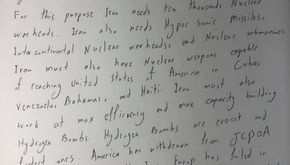 For this purpose Iran needs ten thousands Nuclear
warheads. Iran also needs Hyper Sonic missiles,
Intercontinental Nuclear warheads and Nuclear submarines
Iran must also have Nuclear weapons capable
of reaching United states of America in Cuba,
Venezuelas Bahamas, and Haiti. Iran must also
work at max efficiency and max capacity building
Hydrogen Bombs. Hydrogen Bombs are easiest and
ones. America has withdrawn from JCPOA
has failed in